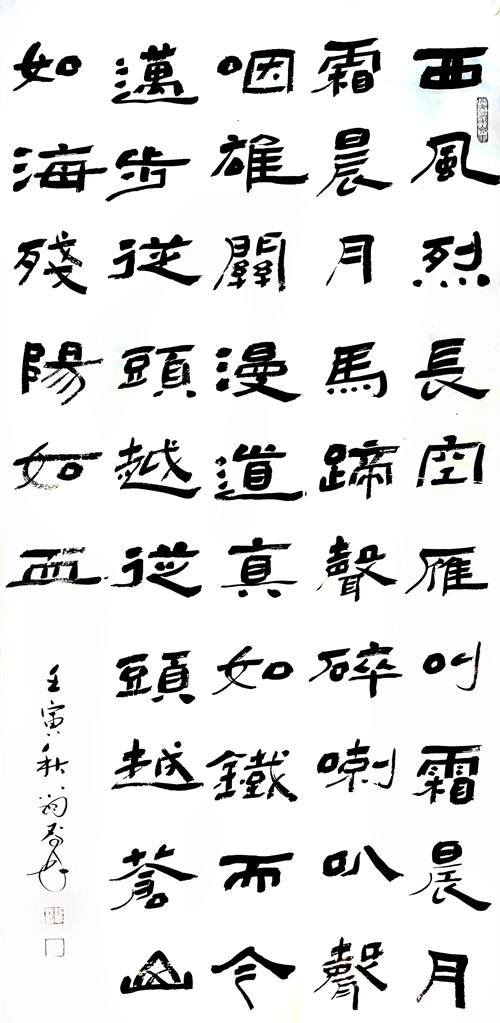 西風烈長空雁叫霜晨月
霜晨月馬蹄聲碎喇叭聲
咽雄關漫道真如鐵而今
邁步從頭越從頭越蒼山
如海殘陽如血
壬寅秋